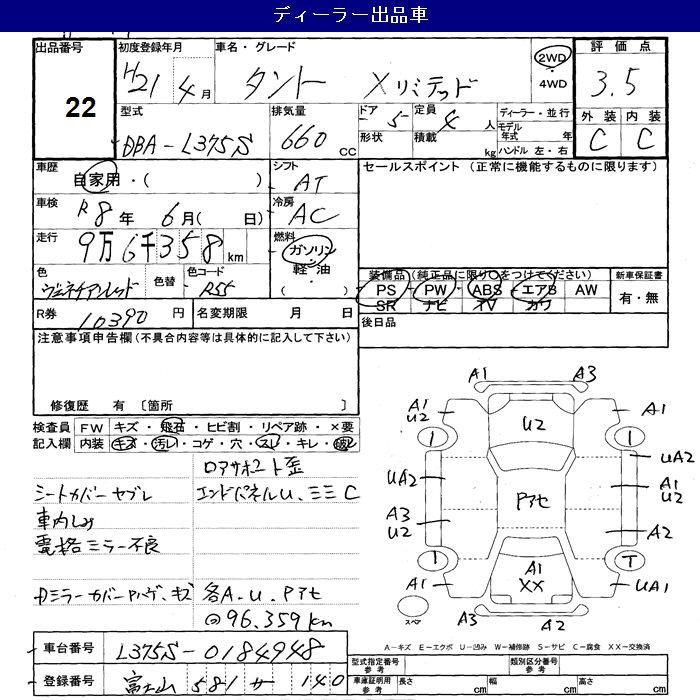 ディーラー出品車
出品番号 22
初度登録年月 H21年 4月
車名・グレード タント Xリミテッド
2WD
4WD
評価点 3.5
外装 内装
C C
型式 DBA-L375S
排気量 660 CC
ドア 5
形状
定員 4 人
積載 kg
ディーラー・並行
モデル年式 年
ハンドル 左・右
車歴 自家用・( )
シフト AT
セールスポイント (正常に機能するものに限ります)
車検 R8年 6月( 日)
冷房 AC
走行 9万6千358km
燃料 ガソリン
軽・油
( )
色 ヴェネチアンレッド
色替
色コード R55
装備品(純正品に限り○をつけてください)
新車保証書
PS PW ABS エアB AW
有・無
SR ナビ TV カワ
R券 10390 円
名変期限 月 日
後日品
注意事項申告欄(不具合内容等は具体的に記入して下さい)
修復歴 有 〔箇所 〕
検査員 FW キズ・飛石・ヒビ割・リペア跡・×要
記入欄 内装 キズ・汚れ・コゲ・穴・スレ・キレ・破れ
ロアサポート歪
シートカバーヤブレ エンドパネルU、ミミC
車内しみ
電格ミラー不良
Dミラーカバーハゲ、キズ 各A.U.Pアセ
@96.359km
車台番号 L375S-0184948
登録番号 富士山 581 サ 140
A1 A3
A1 U2 A1
U2
UA2 UA2
Pアセ A1 U2
A3 U2 A2
T
A1 A1 XX UA1
スペア A3 A2
A-キズ E-エクボ U-凹み W-補修跡 S-サビ C-腐食 XX-交換済
型式指定番号 参考
類別区分番号 参考
車庫証明用 参考 長さ cm 幅 cm 高さ cm